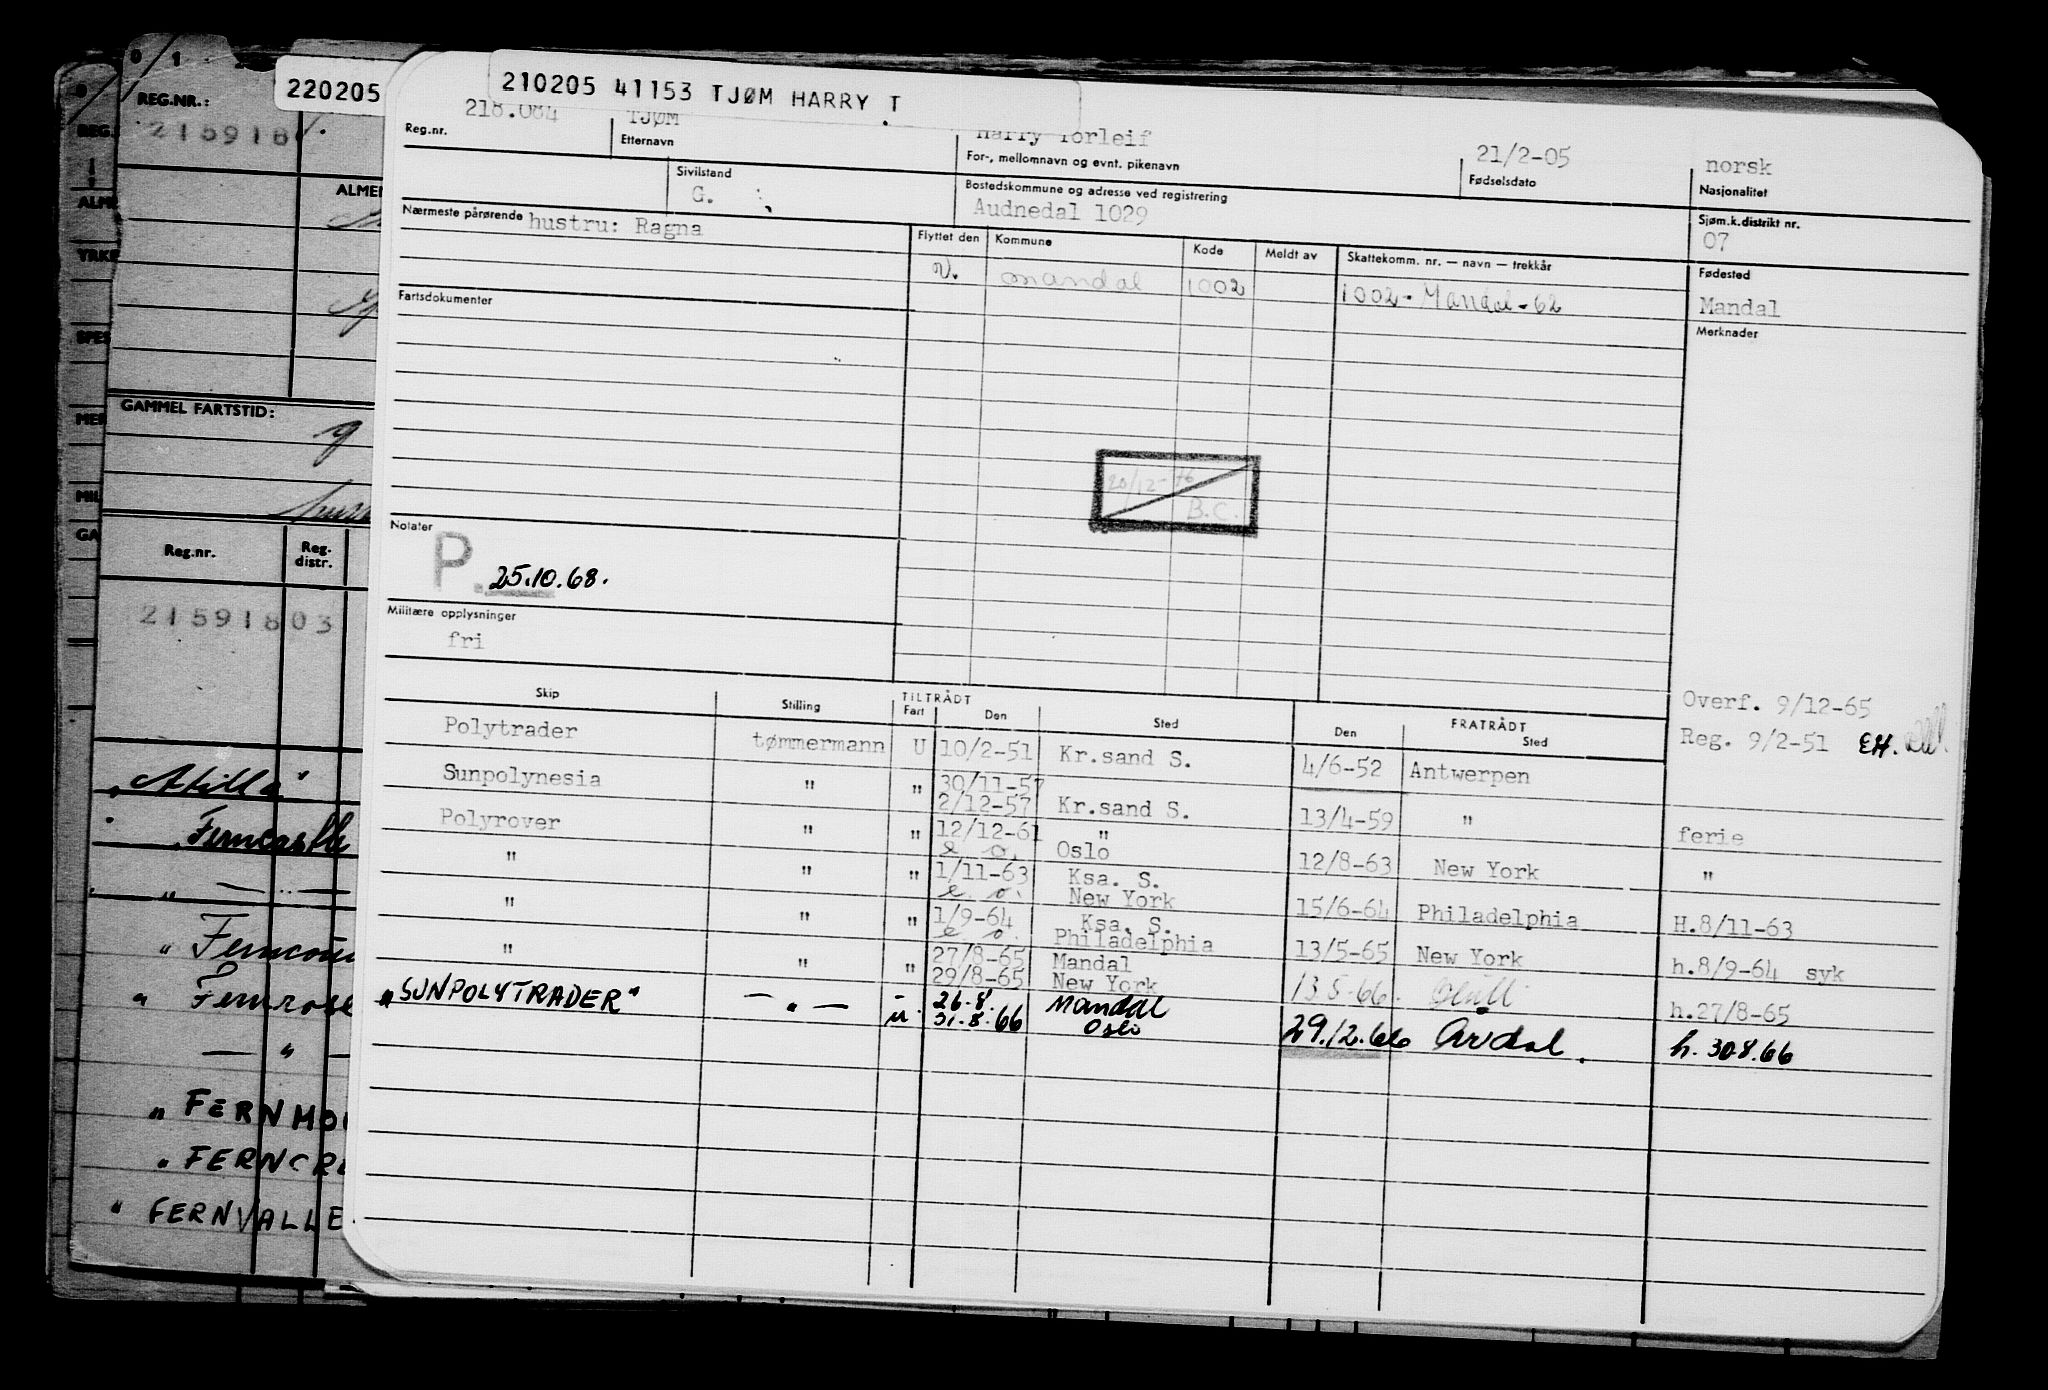 0 1
220205
REG.NR.:
ALMEN
GAMMEL FARTSTID:
Reg.nr.
Reg. distr.
21591803
"Atilla"
Ferncastle
" — " —
" Ferncour
" Fernrose
— " —
" FERNMO
" FERNCRE
" FERNVALLE
210205 41153 TJØM HARRY T
218.084 TJØM Harry Torleif 21/2-05 norsk
Reg.nr. Etternavn For-, mellomnavn og evnt. pikenavn Fødselsdato Nasjonalitet
Sivilstand Bostedskommune og adresse ved registrering Sjøm.k.distrikt nr.
G. Audnedal 1029 07
Nærmeste pårørende hustru: Ragna
Flyttet den Kommune Kode Meldt av Skattekomm. nr. — navn — trekkår Fødested
v. Mandal 1002 1002 - Mandal - 62 Mandal
Fartsdokumenter Merknader
20/12-76
B.C.
Notater
P. 25.10.68.
Militære opplysninger
fri
Overf. 9/12-65
Reg. 9/2-51 EH.
Skip Stilling TILTRÅDT FRATRÅDT
Fart Den Sted Den Sted
Polytrader tømmermann U 10/2-51 Kr.sand S. 4/6-52 Antwerpen
Sunpolynesia " " 30/11-57
2/12-57 Kr.sand S. 13/4-59 " ferie
Polyrover " " 12/12-61 "
e o. Oslo 12/8-63 New York "
" " " 1/11-63 Ksa. S.
e. o. New York 15/6-64 Philadelphia H.8/11-63
" " " 1/9-64 Ksa. S.
e o. Philadelphia 13/5-65 New York h.8/9-64 syk
" " " 27/8-65 Mandal
29/8-65 New York 13.5.66. h.27/8-65
"SUNPOLYTRADER" — " — - 26.8. Mandal
u. 31.8.66 Oslo 29.12.66 Årdal. h. 30.8.66